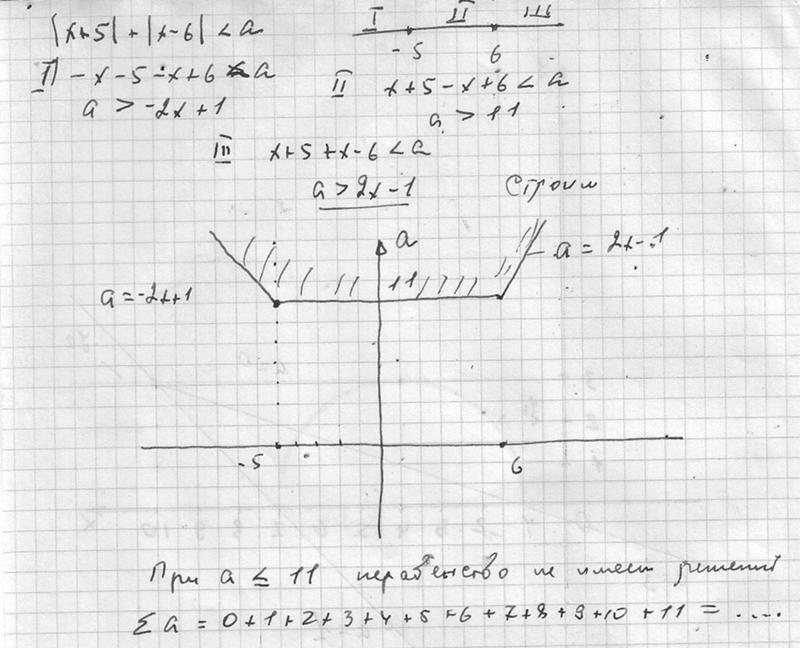 |x+5| + |x-6| < a
I II III
-5 6
I) -x-5-x+6 < a
a > -2x+1
II x+5-x+6 < a
a > 11
III x+5+x-6 < a
a > 2x-1
Строим
a
a = 2x-1
a = -2x+1
-5 6
При a ≤ 11 неравенство не имеет решений
Σa = 0+1+2+3+4+5+6+7+8+9+10+11 = ....